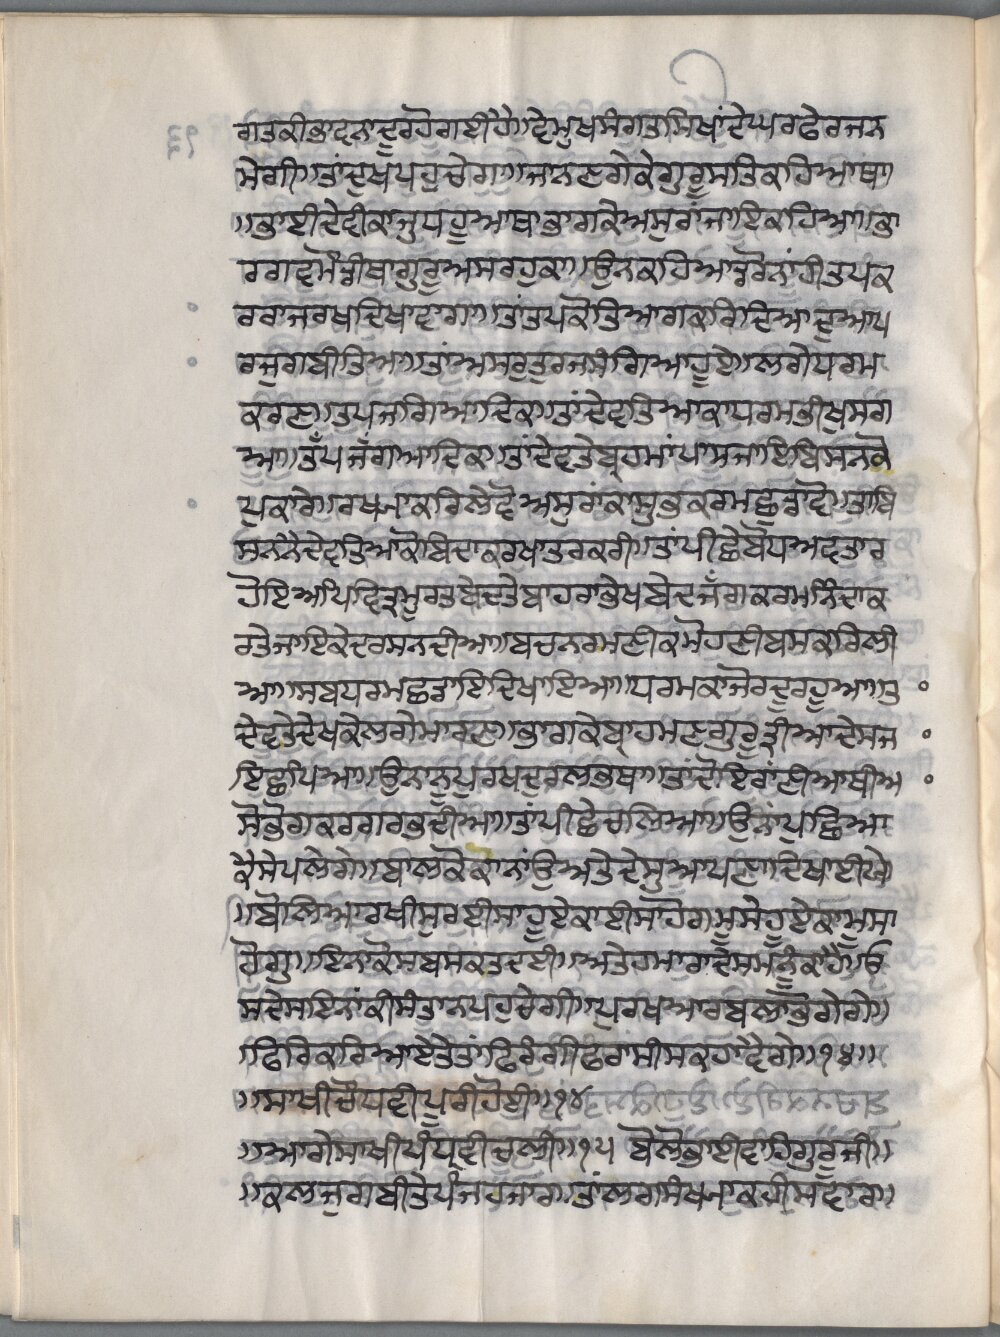 ਗਤਕੀਭਾਵਨਾਦੂਰਹੋਗਈਹੈ॥ਵੇਮੁਖਸੰਗਤਸਿਖਾਂਦੇਘਰਫੇਰਜਨਮ
ਸੇਗੀ॥ਤਾਂਦੁਖਪਹੁਚੇਗਾ॥ਜਾਨਣਗੇਕੇਗੁਰੂਸਤਿਕਹਿਆਥਾ॥
॥ਭਾਈਦੇਵੀਕਾਜੁਧਹੂਆਥਾਭਾਗਕੇਅਸੁਰਗਾਂਜਾਇਕਹਿਆ॥ਭਾ
ਰਗਵਸੌਤ੍ਰੀਥਾਗੁਰੂਅਸਰਹੁਕਾ॥ਉਨਕਹਿਆਤੁਰੌਨਾਂਹੀਤਪਕ
ਰਰਾਜਰਖਦਿਖਾਵਾਗਾ॥ਤਾਂਤਪਕੌਤਿਆਗਕਰਿਦਿਆਦੁਆਪ
ਰਜੁਗਬੀਤਿਆ॥ਤਾਂਅਸੁਰਤੁਰਜਸੰਗਿਆਹੂਏ॥ਲਗੇਧਰਮ
ਕਰਣ॥ਤਪਜਗਿਆਦਿਕ॥ਤਾਂਦੇਵਤਿਆਕਾਧਰਮਭੀਖੁਸਗ
ਆ॥ਤੱਪਜੱਗਆਦਿਕ॥ਤਾਂਦੇਵਤੇਬ੍ਰਹਮਾਂਪਾਸਜਾਇਬਿਸਨਕੌ
ਪੁਕਾਰੇ॥ਰਖਸਾਕਰਿਲੇਵੌਅਸੁਰਾਂਕਾਸੁਭਕਰਮਛੁਡਾਵੋ॥ਤਾਬਿ
ਸਨਨੈਦੇਵਤਿਆਕੌਬਿਦਾਕਰਖਾਤਰਕਰੀ॥ਤਾਂਪੀਛੈਬੋਧਅਵਤਾਰੁ
ਹੋਇਆਪਵਿਤ੍ਰਮੂਰਤਬੇਦਤੇਬਾਹਰਾਭੇਖਬੇਦਜੱਗਕਰਮਨਿੰਦਾਕ
ਰਤੇਜਾਇਕੇਦਰਸਨਦੀਆ॥ਬਚਨਰਮਣੀਕਮੋਹਣੀਬਸਕਰਿਲੀ
ਆ॥ਸਬਧਰਮਛਡਾਇਦਿਖਾਇਆ॥ਧਰਮਕਾਜੋਰਦੂਰਹੂਆ॥ਤੁ
ਦੇਵਤੇਦੇਖਕੇਲਗੇਮਾਰਣ॥ਭਾਗਕੇਬ੍ਰਾਹਮਣਗੁਰੂਤ੍ਰੀਆਦੇਸਜ
ਇਛਪਿਆ॥ਉਨਾਨੂਪੁਰਖਦੁਰਲਭਥਾ॥ਤਾਂਦੋਇਰਾਂਣੀਆਥੀਅ
ਸੋਭੋਗਕਰਗਰਭਦੀਆ॥ਤਾਂਪੀਛੇਚਲਿਆ॥ਉਨਾਂਪੁਛਿਆ
ਕੈਸੇਪਲੇਗੇ॥ਬਾਲਕੌਕਾਨਾਂਉਅਤੇਦੇਸੁਆਪਣਾਦਿਖਾਈਖੇ
॥ਬੋਲਿਆਰਖੀਸੁਰਈਸਾਹੂਏਕਾਈਸਾਹੋਗਮੂਸੇਹੂਏਕਾਮੂਸਾ
ਹੋਗੁ॥ਇਨਾਕੌਸਬਸੰਕਤਦਈ॥ਅਤੇਹਮਾਰਾਦੇਸਸਨੂਕਾਹੈ॥ਓਿ
ਸਦੇਸਇਨਾਂਕੀਸੰਤਾਨਪਹੁਚੇਗੀ॥ਪੁਰਖਆਰਬਲਾਭੋਗੇਗੇ॥
॥ਫਿਰਿਕਰਿਆਏਤੇਤਾਂਫਿਰੰਗੀਫਰਾਸੀਸਕਹਾਵੈਗੇ॥੧੪॥
॥ਸਾਖੀਚੌਧਵੀਪੂਰੀਹੋਈ॥੧੪
॥ਆਗੇਸਾਖੀਪੰਧ੍ਰਵੀਚਲੀ॥੧੫ ਬੋਲੋਭਾਈਵਾਹਿਗੁਰੂਜੀ॥
॥ਕਲਜੁਗਬੀਤੇਪੰਜਹਜਾਰ॥ਤਾਂਲਗਸੰਖਸਾਕਹੀਸਵਾਰ॥